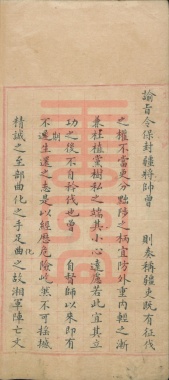 諭旨令保封疆將帥曾　則奏稱疆吏既有征伐
之權不當更分黜陟之柄宜防外重內輕之漸
兼杜植黨樹私之端其小心遠慮若此宜其立
功之後不自矜伐也曾　自督師以來即有
不遑生還之志是以經歷危險屹然不可搖撼
精誠之至部曲化之手足曲之故湘軍陣亡文
則
化